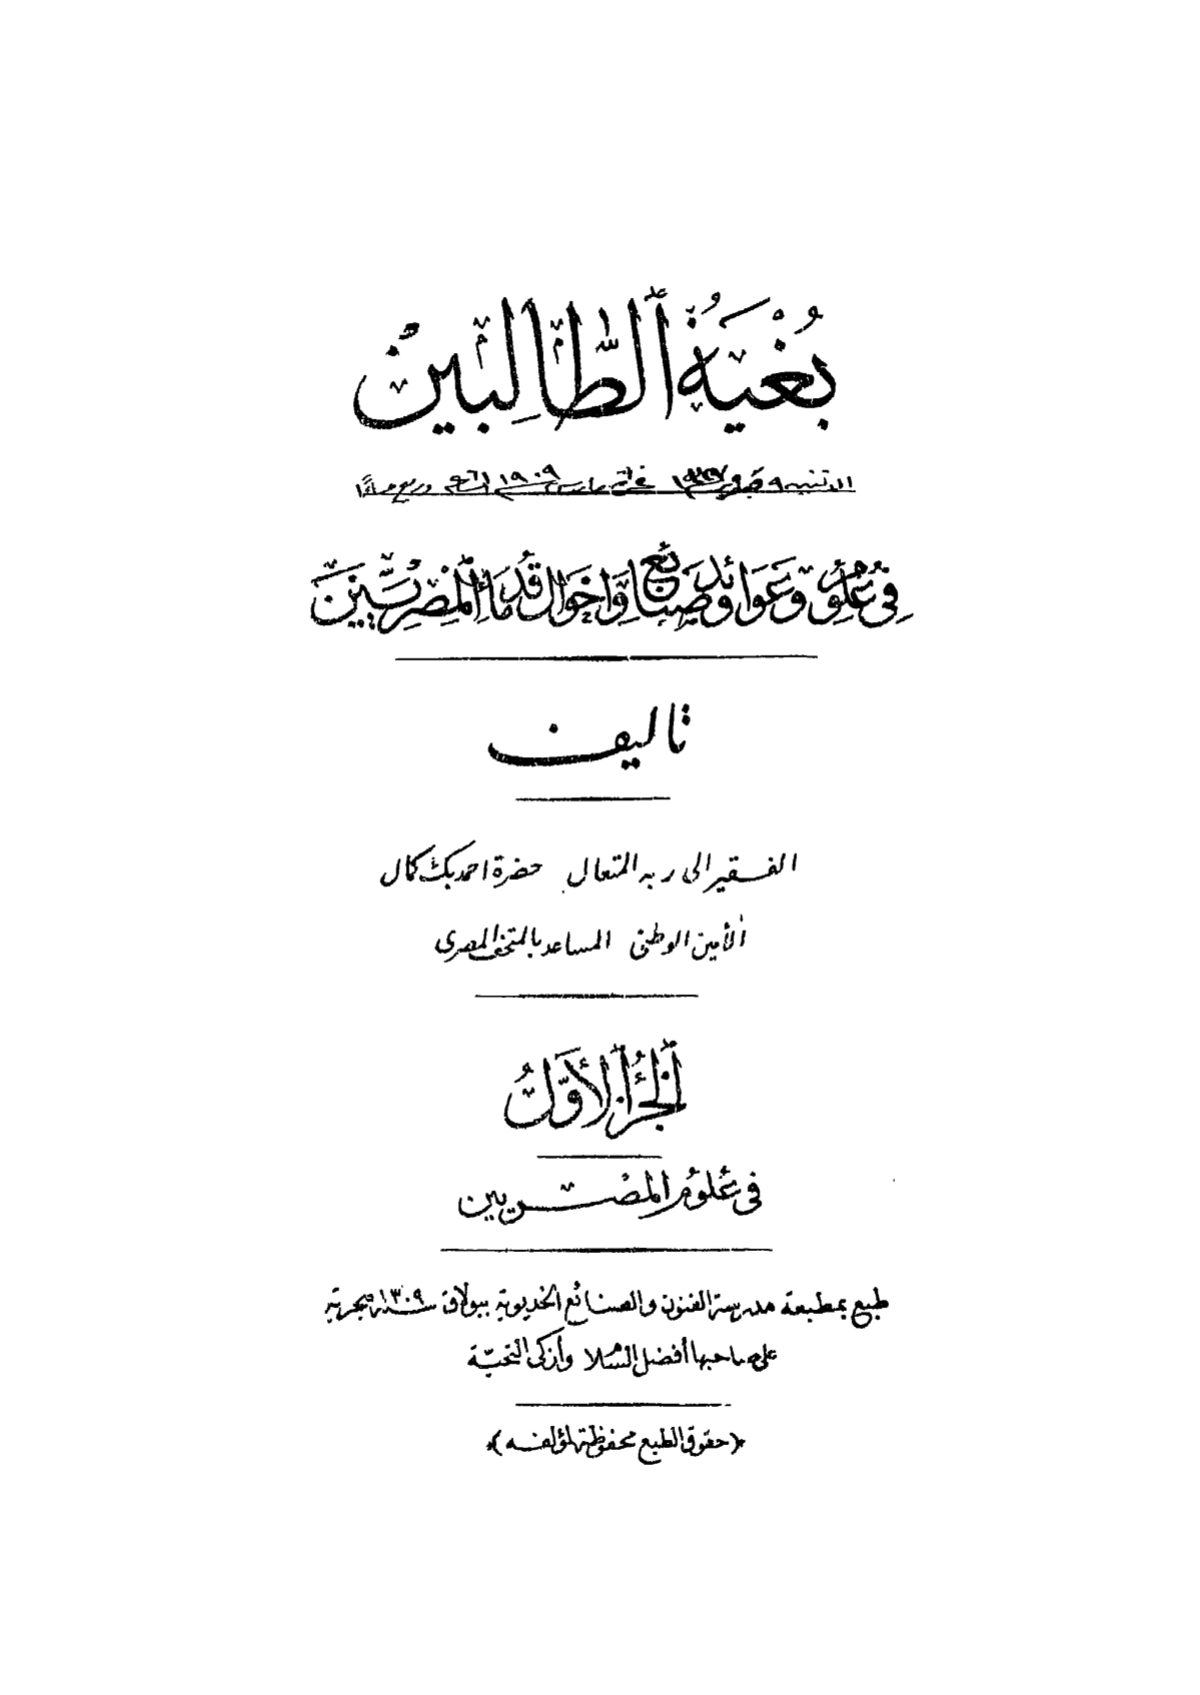 بُغْيَةُ ٱلطَّالِبِيْنَ
الاثنين ٩ صفر ١٣٢٧ غرة مارس ١٩٠٩
فِي عُلُوْمِ وَعَوَائِدِ وَصَنَائِعِ وَاَحْوَالِ قُدَمَاءِ ٱلْمِصْرِيِّيْنَ
تاليف
الفقير الى ربه المتعال حضرة احمد بك كمال
الأمين الوطنى المساعد بالمتحف المصرى
ٱلْجُزْءُ ٱلْأَوَّلُ
فى عُلُوْمِ المصريين
طبع بمطبعة مدرسة الفنون والصنائع الخديوية ببولاق سنة ١٣٠٩ هجرية
على صاحبها أفضل السلام وأزكى التحيّة
(حقوق الطبع محفوظة لمؤلفه)